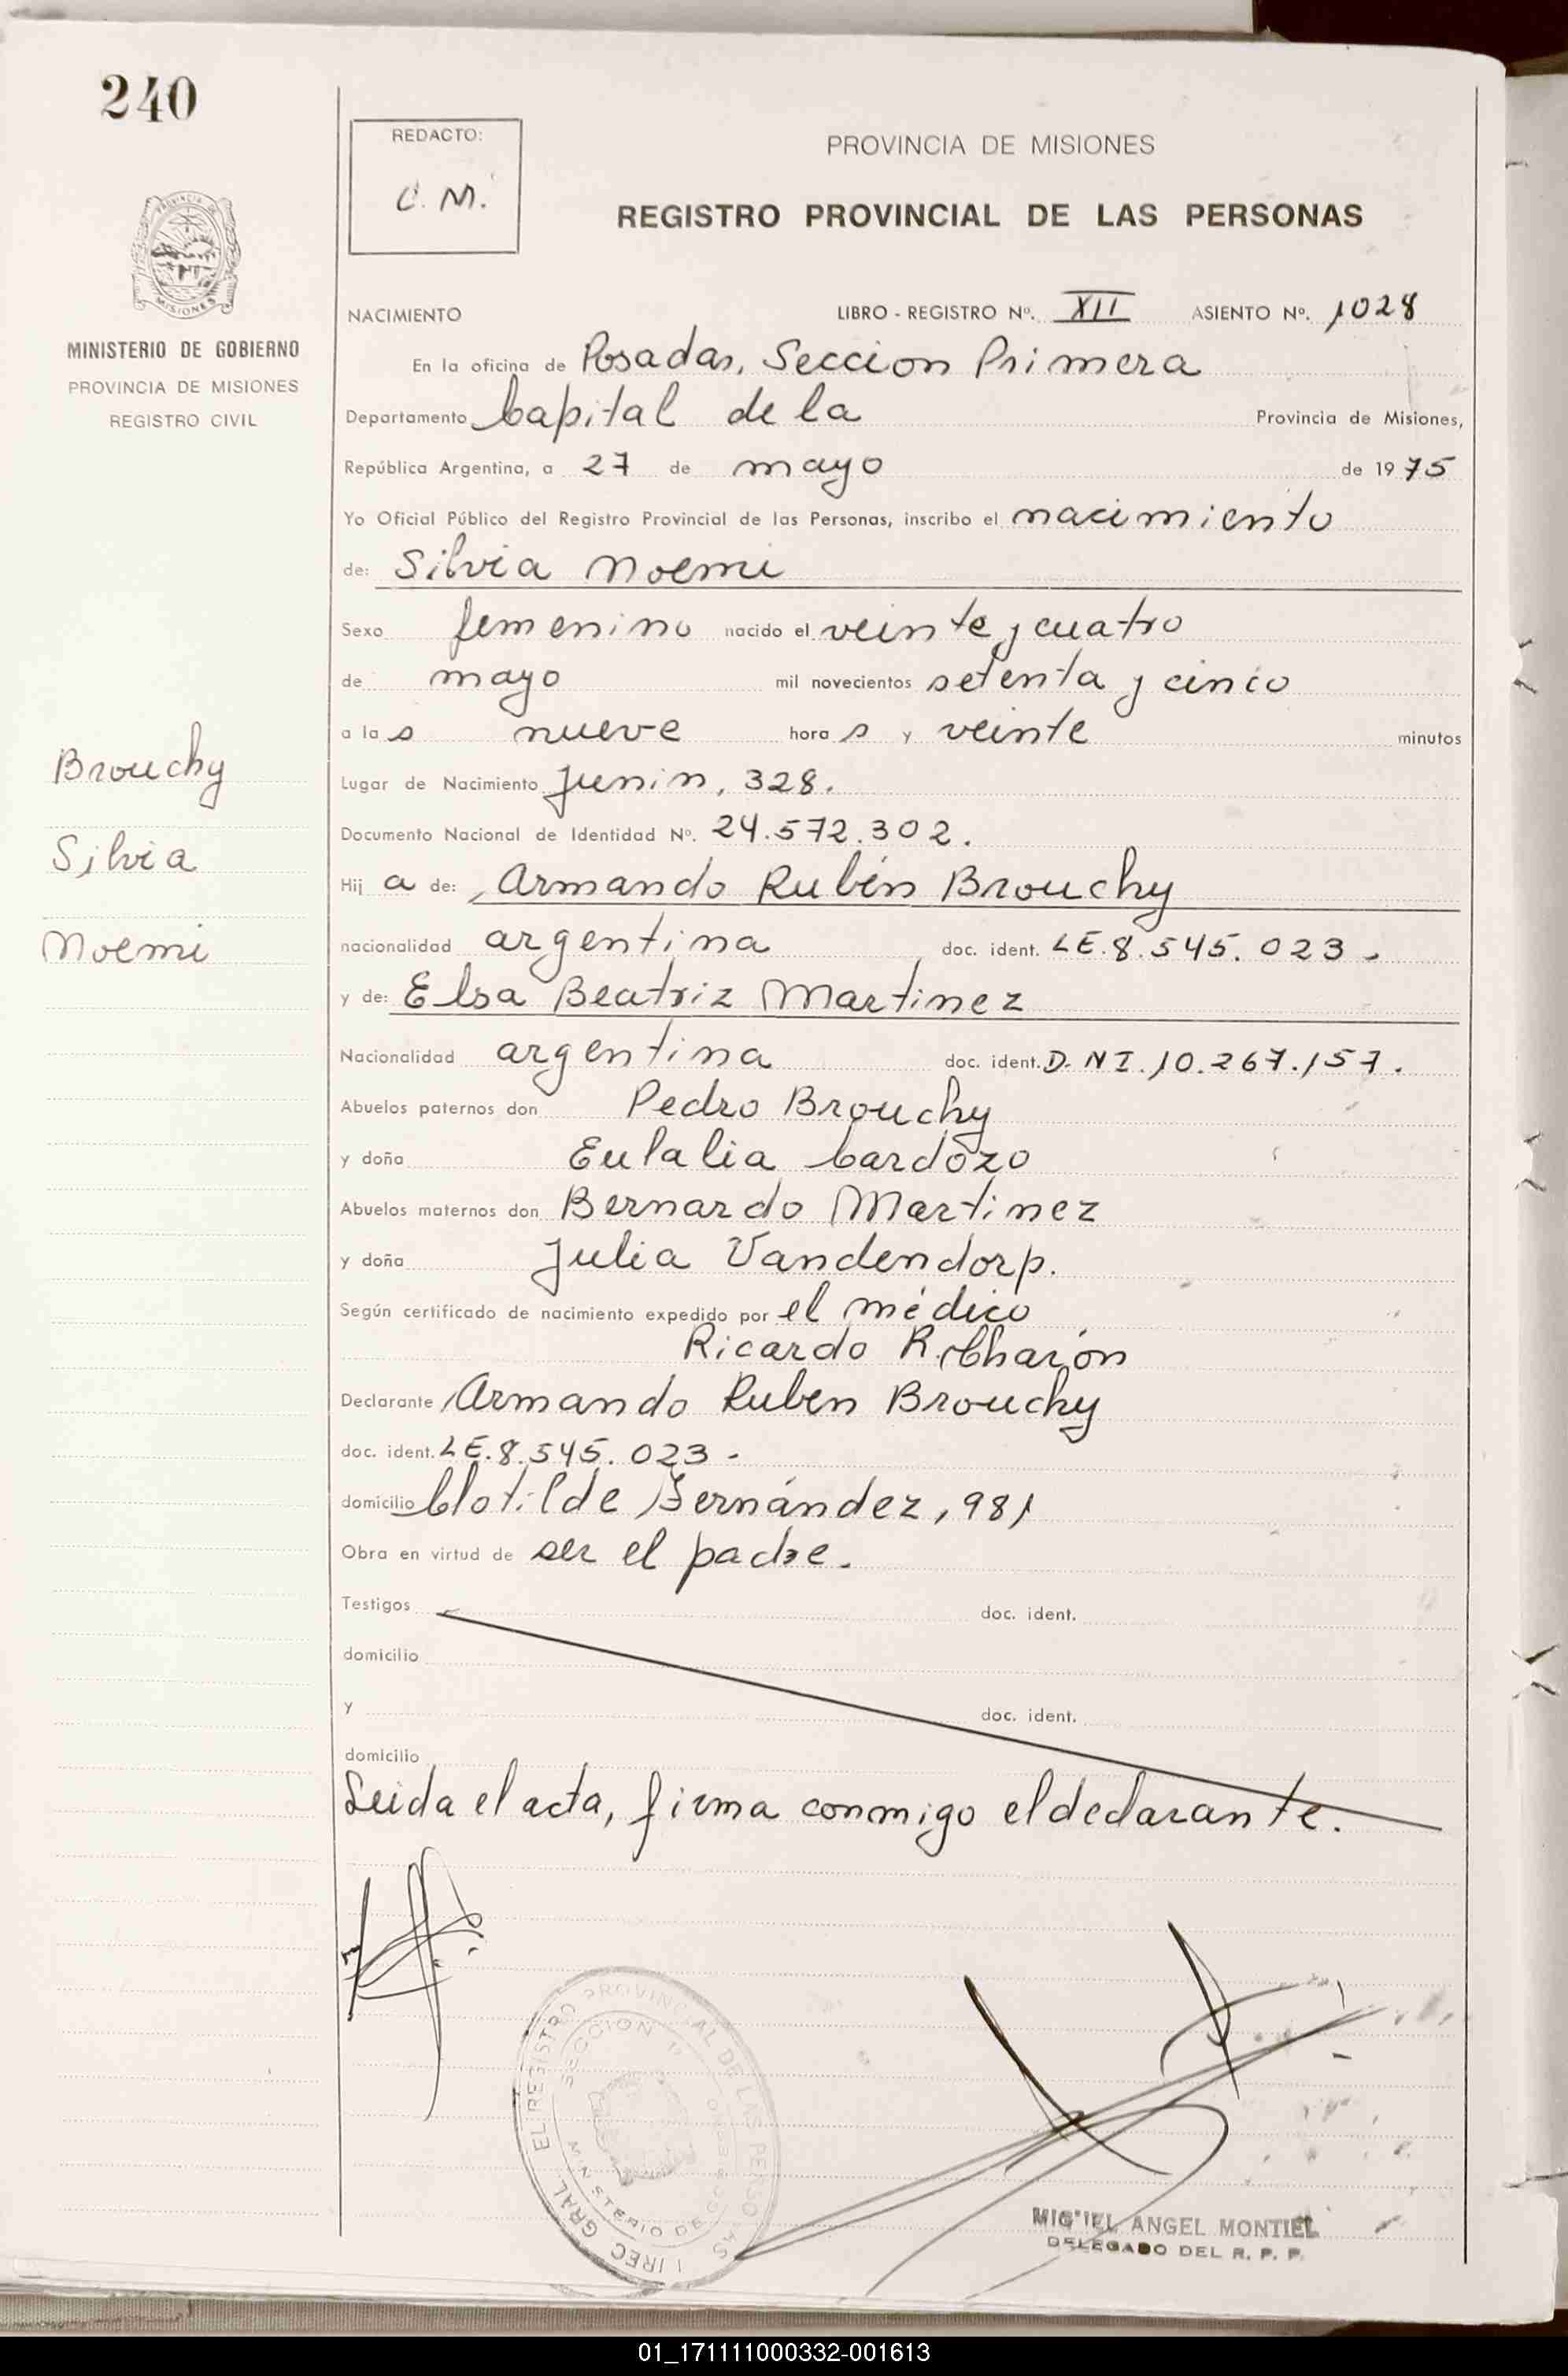 240
REDACTO:
C. M.
PROVINCIA DE MISIONES
REGISTRO PROVINCIAL DE LAS PERSONAS
MISIONES
MINISTERIO DE GOBIERNO
PROVINCIA DE MISIONES
REGISTRO CIVIL
NACIMIENTO LIBRO - REGISTRO Nº. XII ASIENTO Nº. 1028
En la oficina de Posadas, Seccion Primera
Departamento Capital de la Provincia de Misiones,
República Argentina, a 27 de mayo de 1975
Yo Oficial Público del Registro Provincial de las Personas, inscribo el nacimiento
de: Silvia Noemi
Sexo femenino nacido el veinte y cuatro
de mayo mil novecientos setenta y cinco
a las nueve horas y veinte minutos
Brouchy
Silvia
Noemi
Lugar de Nacimiento Junin, 328.
Documento Nacional de Identidad Nº. 24.572.302.
Hija de: Armando Rubén Brouchy
nacionalidad argentina doc. ident. LE. 8.545.023.
y de: Elsa Beatriz Martinez
Nacionalidad argentina doc. ident. D.NI. 10.267.157.
Abuelos paternos don Pedro Brouchy
y doña Eulalia Cardozo
Abuelos maternos don Bernardo Martinez
y doña Julia Vandendorp.
Según certificado de nacimiento expedido por el médico
Ricardo R. Charón
Declarante Armando Ruben Brouchy
doc. ident. LE. 8.545.023.
domicilio Clotilde Fernández, 981
Obra en virtud de ser el padre.
Testigos doc. ident.
domicilio
y doc. ident.
domicilio
Leida el acta, firma conmigo el declarante.
EL REGISTRO PROVINCIAL DE LAS PERSONAS
SECCION
MINISTERIO DE GOBIERNO
MIGUEL ANGEL MONTIEL
DELEGADO DEL R. P. P.
01_171111000332-001613